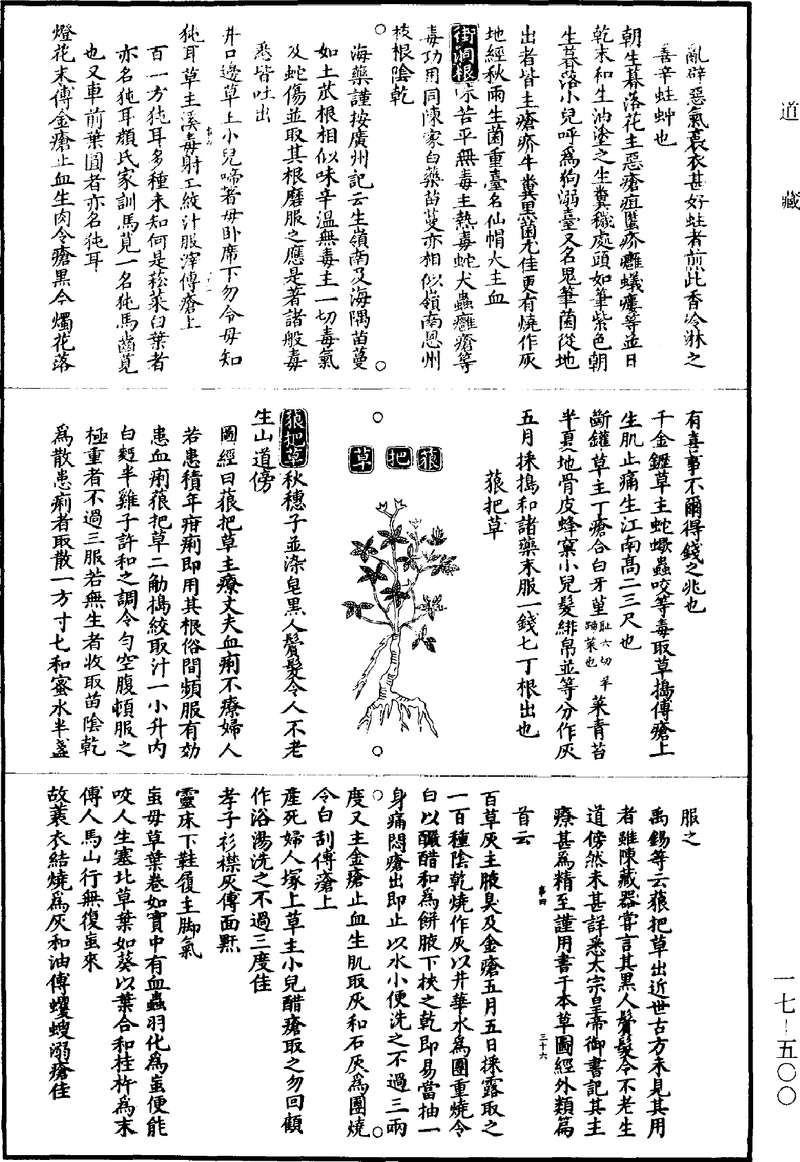 道藏
一七—五〇〇
亂辟惡氣裛衣甚好蛀者煎此香冷淋之
善辛蛀蚛也
朝生暮落花主惡瘡疽䘌疥癰蟻瘻等並日
乾末和生油塗之生糞穢處頭如筆紫色朝
生暮落小兒呼爲狗溺臺又名鬼筆菌從地
出者皆主瘡疥牛糞黑菌尤佳更有燒作灰
地經秋雨生菌重臺名仙帽大主血
衝洞根味苦平無毒主熱毒蛇犬蟲癰瘡等
毒功用同陳家白藥苗蔓亦相似嶺南恩州
枝根陰乾
海藥謹按廣州記云生嶺南及海隅苗蔓
如土苽根相似味辛溫無毒主一切毒氣
及蛇傷並取其根磨服之應是著諸般毒
悉皆吐出
井口邊草主小兒啼著母臥席下勿令母知
㹠耳草主溪毒射工絞汁服滓傅瘡上
百一方㹠耳多種未知何是菘菜白葉者
亦名㹠耳顏氏家訓馬莧一名㹠馬齒莧
也又車前葉圓者亦名㹠耳
燈花末傅金瘡止血生肉令瘡黑今燭花落
有喜事不爾得錢之兆也
千金鑷草主蛇蠍蟲咬等毒取草搗傅瘡上
生肌止痛生江南高二三尺也
斷罐草主丁瘡合白牙堇菜青苔
半夏地骨皮蜂窠小兒髮緋帛並等分作灰
五月採搗和諸藥末服一錢匕丁根出也
莨把草
莨把草
狼把草秋穗子並染皂黑人鬢髮令人不老
生山道傍
圖經曰莨把草主療丈夫血痢不療婦人
若患積年疳痢即用其根俗間頻服有効
患血痢莨把草二觔搗絞取汁一小升內
白麪半雞子許和之調令勻空腹頓服之
極重者不過三服若無生者收取苗陰乾
爲散患痢者取散一方寸匕和蜜水半盞
服之
禹錫等云狼把草出近世古方未見其用
者雖陳藏器嘗言其黑人鬢髮令不老生
道傍然未甚詳悉太宗皇帝御書記其主
療甚爲精至謹用書于本草圖經外類篇
首云
百草灰主腋臭及金瘡五月五日採露取之
一百種陰乾燒作灰以井華水爲團重燒令
白以釅醋和爲餅腋下挾之乾即易當抽一
身痛悶瘡出即止以水小便洗之不過三兩
度又主金瘡止血生肌取灰和石灰爲團燒
令白刮傅瘡上
產死婦人塚上草主小兒醋瘡取之勿回顧
作浴湯洗之不過三度佳
孝子衫襟灰傅面䵟
靈床下鞋履主脚氣
䖟母草葉卷如實中有血蟲羽化爲䖟便能
咬人生塞北草葉如葵以葉合和桂杵爲末
傅人馬山行無復䖟來
故蓑衣結燒爲灰和油傅蠷螋溺瘡佳